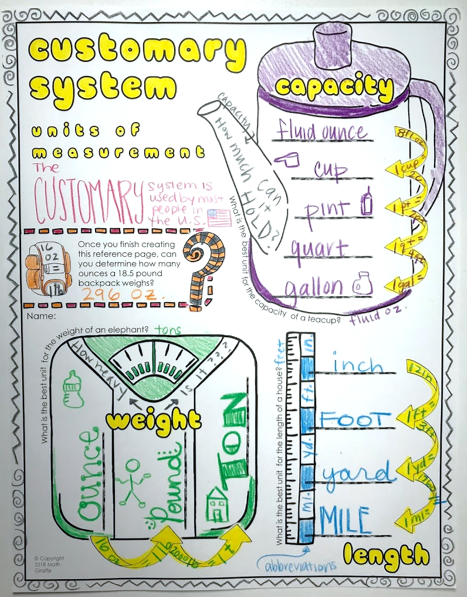 customary
system
units of
measurement
The
CUSTOMARY system is
used by most
people in
the U.S.
16
oz
Once you finish creating
this reference page, can
you determine how many
ounces a 18.5 pound
backpack weighs?
296 oz.
Name:
capacity
capacity?
How much can
it
HOLD?!
fluid ounce
cup
pint
quart
gallon
1 cup
1pt =
1qt =
1gal =
What is the best unit for the capacity of a teacup? fluid oz.
What is the best unit for the weight of an elephant? tons
How heavy
is it???
weight
Ounce
Pound
TON
16 oz
2000 lbs
What is the best unit for the length of a house? feet
in
ft.
yd.
mi.
inch
FOOT
yard
MILE
12in
1ft =
3ft
1yd =
1mi=
abbreviations
length
© Copyright
2018 Math
Giraffe